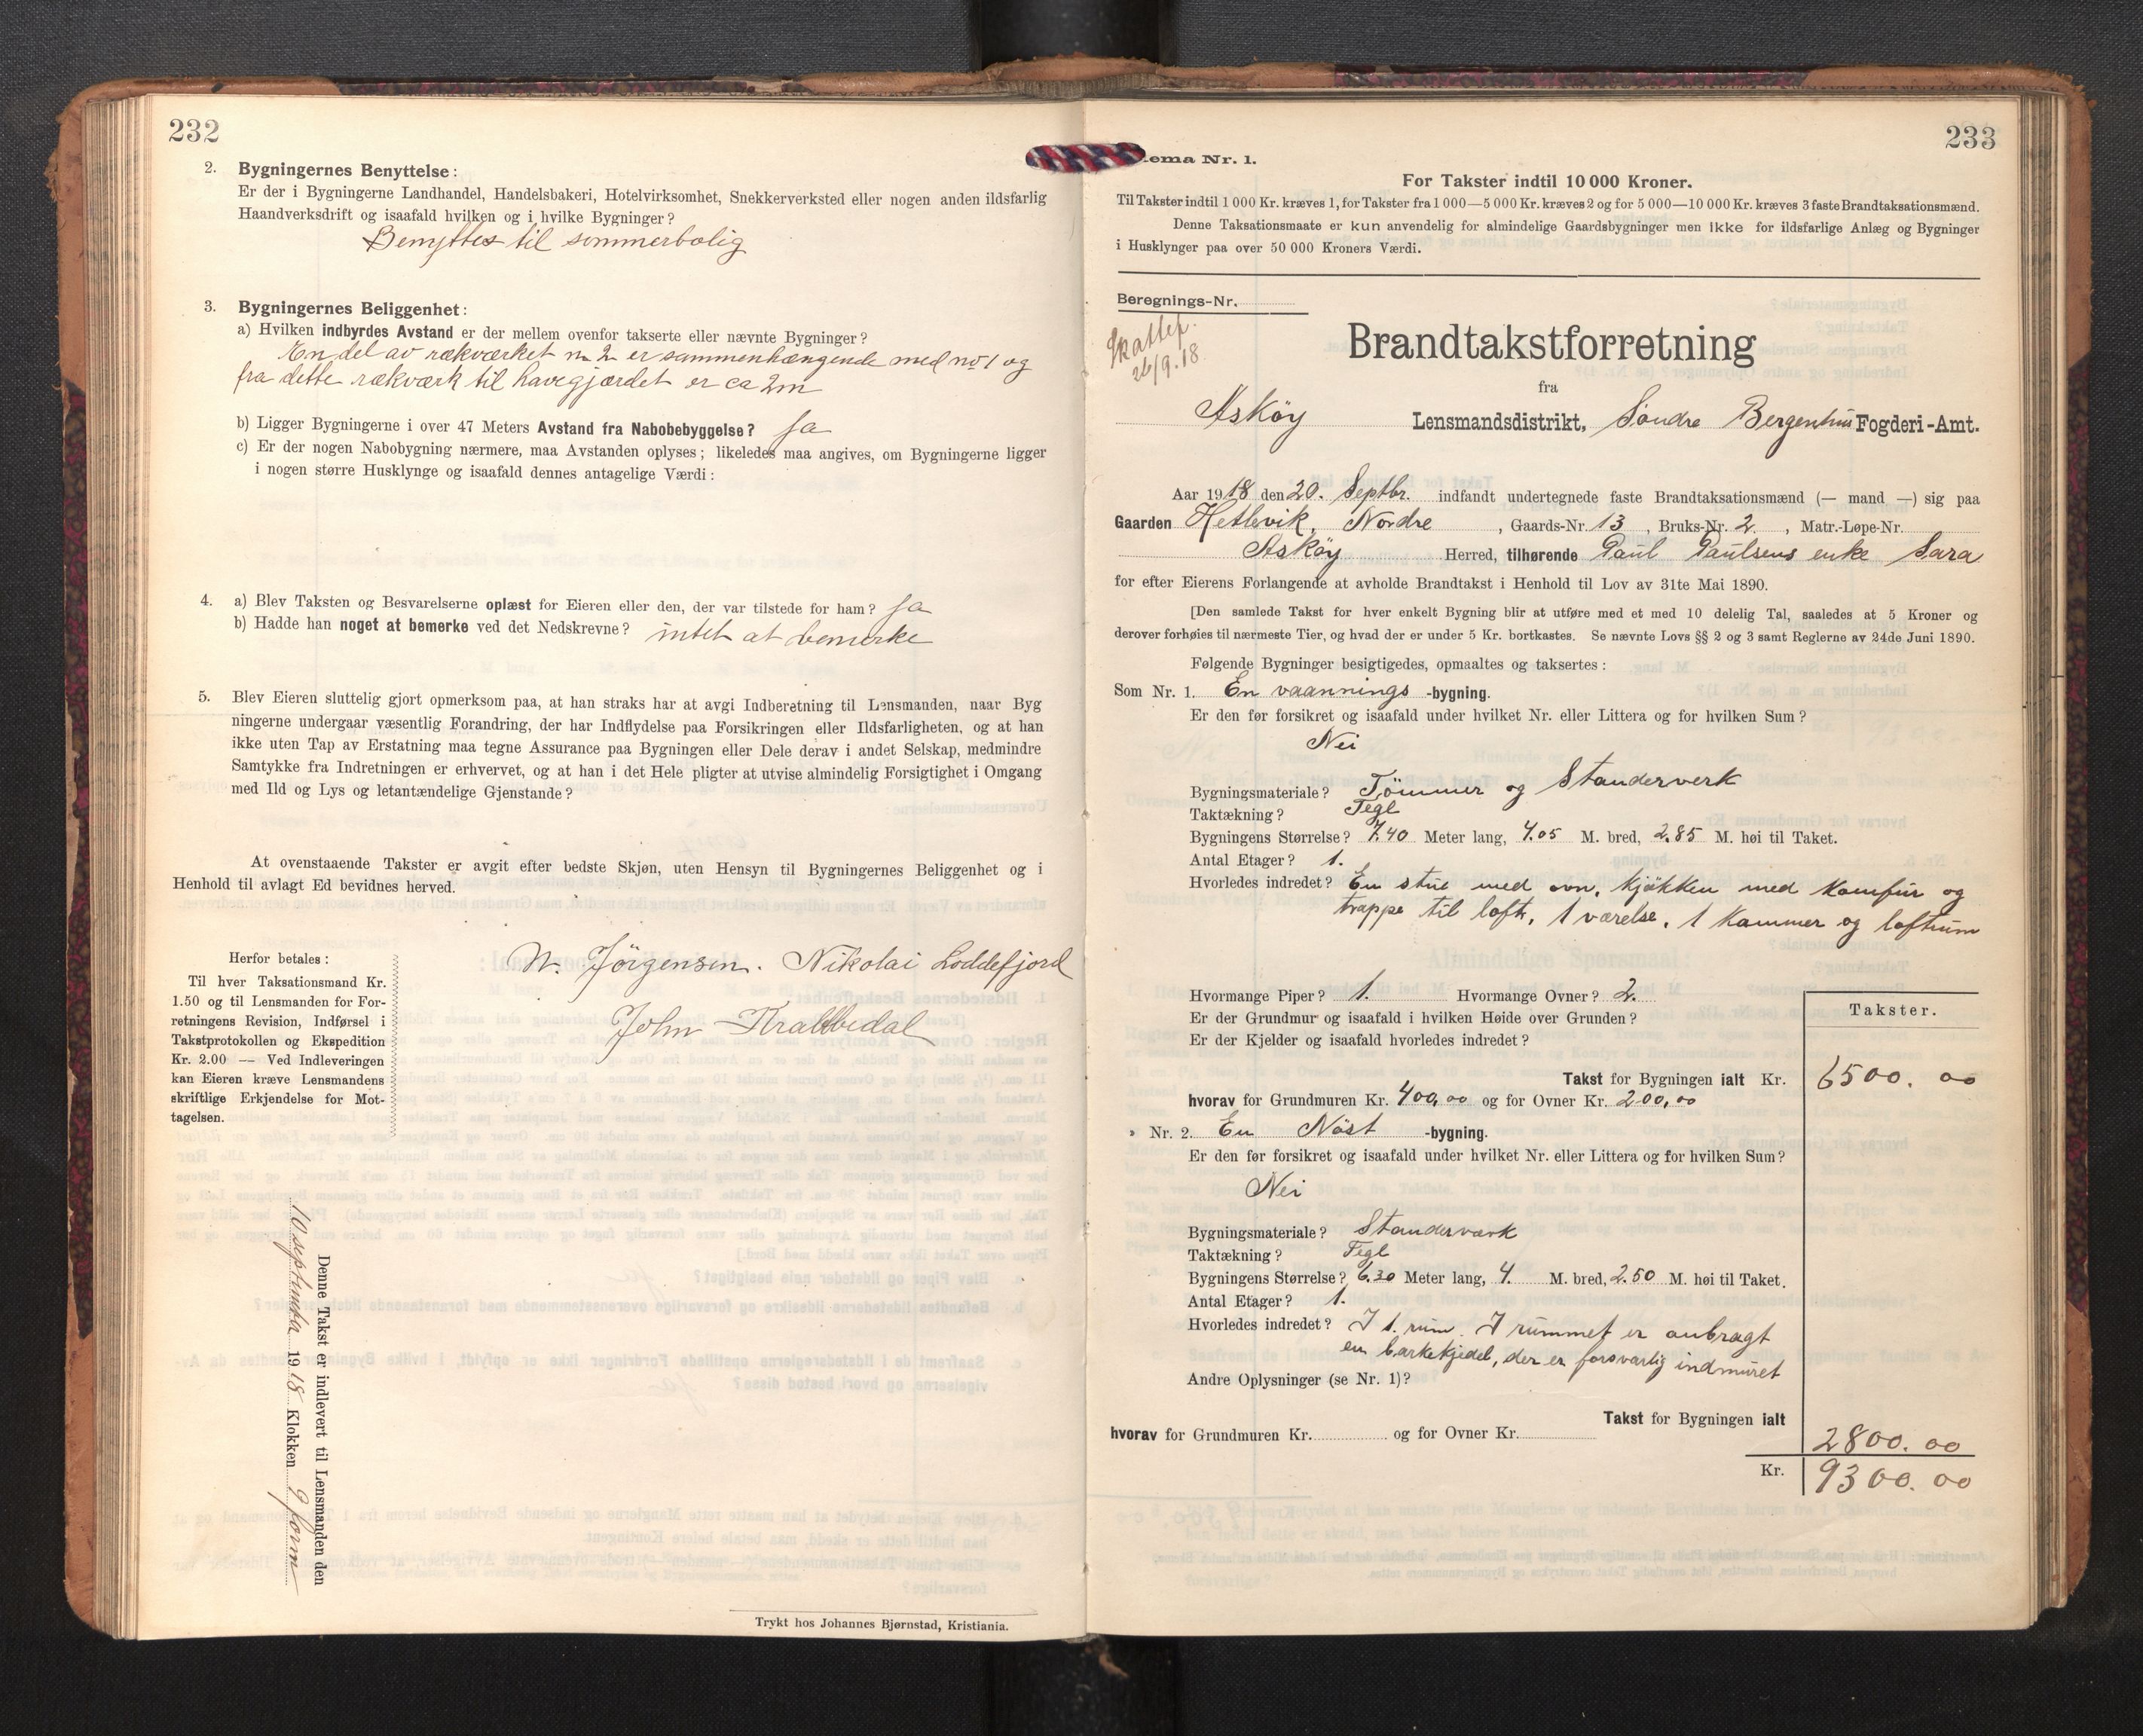 232
2. Bygningernes Benyttelse:
Er der i Bygningerne Landhandel, Handelsbakeri, Hotelvirksomhet, Snekkerverksted eller nogen anden ildsfarlig
Haandverksdrift og isaafald hvilken og i hvilke Bygninger?
Benyttes til sommerbolig
3. Bygningernes Beliggenhet:
a) Hvilken indbyrdes Avstand er der mellem ovenfor takserte eller nævnte Bygninger?
En del av rækværket no 2 er sammenhængende med no 1 og
fra dette rækværk til havegjærdet er ca 2m
b) Ligger Bygningerne i over 47 Meters Avstand fra Nabobebyggelse? Ja
c) Er der nogen Nabobygning nærmere, maa Avstanden oplyses; likeledes maa angives, om Bygningerne ligger
i nogen større Husklynge og isaafald dennes antagelige Værdi:
4. a) Blev Taksten og Besvarelserne oplæst for Eieren eller den, der var tilstede for ham? Ja
b) Hadde han noget at bemerke ved det Nedskrevne? intet at bemerke
5. Blev Eieren sluttelig gjort opmerksom paa, at han straks har at avgi Indberetning til Lensmanden, naar Byg
ningerne undergaar væsentlig Forandring, der har Indflydelse paa Forsikringen eller Ildsfarligheten, og at han
ikke uten Tap av Erstatning maa tegne Assurance paa Bygningen eller Dele derav i andet Selskap, medmindre
Samtykke fra Indretningen er erhvervet, og at han i det Hele pligter at utvise almindelig Forsigtighet i Omgang
med Ild og Lys og letantændelige Gjenstande?
At ovenstaaende Takster er avgit efter bedste Skjøn, uten Hensyn til Bygningernes Beliggenhet og i
Henhold til avlagt Ed bevidnes herved.
N. Jörgensen. Nikolai Loddefjord
John Krabbedal
Herfor betales:
Til hver Taksationsmand Kr.
1.50 og til Lensmanden for For-
retningens Revision, Indførsel i
Takstprotokollen og Ekspedition
Kr. 2.00 — Ved Indleveringen
kan Eieren kræve Lensmandens
skriftlige Erkjendelse for Mot-
tagelsen.
Denne Takst er indlevert til Lensmanden den
10 september 1918 Klokken 9 form
Trykt hos Johannes Bjørnstad, Kristiania.
233
ema Nr. 1.
For Takster indtil 10 000 Kroner.
Til Takster indtil 1 000 Kr. kræves 1, for Takster fra 1 000—5 000 Kr. kræves 2 og for 5 000—10 000 Kr. kræves 3 faste Brandtaksationsmænd.
Denne Taksationsmaate er kun anvendelig for almindelige Gaardsbygninger men ikke for ildsfarlige Anlæg og Bygninger
i Husklynger paa over 50 000 Kroners Værdi.
Beregnings-Nr.
Skattef.
26/9.18
Brandtakstforretning
fra
Asköy Lensmandsdistrikt, Söndre Bergenhus Fogderi-Amt.
Aar 1918 den 20. Septbr. indfandt undertegnede faste Brandtaksationsmænd (— mand —) sig paa
Gaarden Hetlevik, Nordre, Gaards-Nr. 13, Bruks-Nr. 2, Matr.-Løpe-Nr.
Asköy Herred, tilhørende Paul Paulsens enke Sara
for efter Eierens Forlangende at avholde Brandtakst i Henhold til Lov av 31te Mai 1890.
[Den samlede Takst for hver enkelt Bygning blir at utføre med et med 10 delelig Tal, saaledes at 5 Kroner og
derover forhøies til nærmeste Tier, og hvad der er under 5 Kr. bortkastes. Se nævnte Lovs §§ 2 og 3 samt Reglerne av 24de Juni 1890.
Følgende Bygninger besigtigedes, opmaaltes og taksertes:
Som Nr. 1. En vaannings -bygning.
Er den før forsikret og isaafald under hvilket Nr. eller Littera og for hvilken Sum?
Nei
Bygningsmateriale? Tömmer og Standerverk
Taktækning? Tegl
Bygningens Størrelse? 7.40 Meter lang, 4.05 M. bred, 2.85 M. høi til Taket.
Antal Etager? 1.
Hvorledes indredet? En stue med ovn, kjökken med komfur og
trappe til loft, 1 værelse, 1 kammer og loftrum
Hvormange Piper? 1. Hvormange Ovner? 2.
Er der Grundmur og isaafald i hvilken Høide over Grunden?
Er der Kjelder og isaafald hvorledes indredet?
Takster.
Takst for Bygningen ialt Kr. 6500.00
hvorav for Grundmuren Kr. 400,00 og for Ovner Kr. 200,00
» Nr. 2. En Nöst -bygning.
Er den før forsikret og isaafald under hvilket Nr. eller Littera og for hvilken Sum?
Nei
Bygningsmateriale? Standerværk
Taktækning? Tegl
Bygningens Størrelse? 6.30 Meter lang, 4. M. bred, 2.50 M. høi til Taket.
Antal Etager? 1.
Hvorledes indredet? I 1. rum. I rummet er anbragt
en barkekjedel, der er forsvarlig indmuret
Andre Oplysninger (se Nr. 1)?
Takst for Bygningen ialt 2800.00
hvorav for Grundmuren Kr. og for Ovner Kr.
Kr. 9300.00